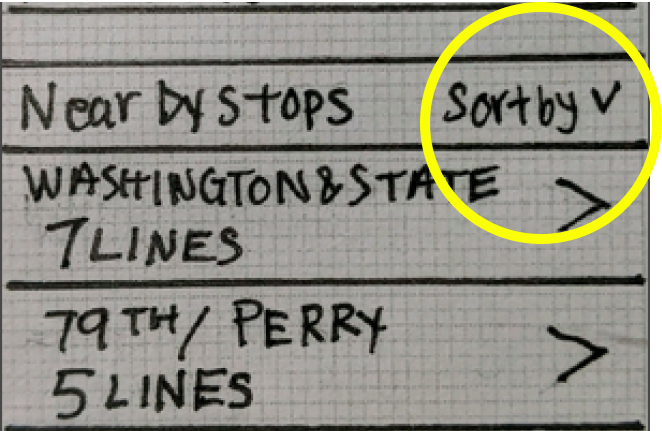 Near by stops Sort by ∨
WASHINGTON & STATE >
7 LINES
79TH/ PERRY >
5 LINES